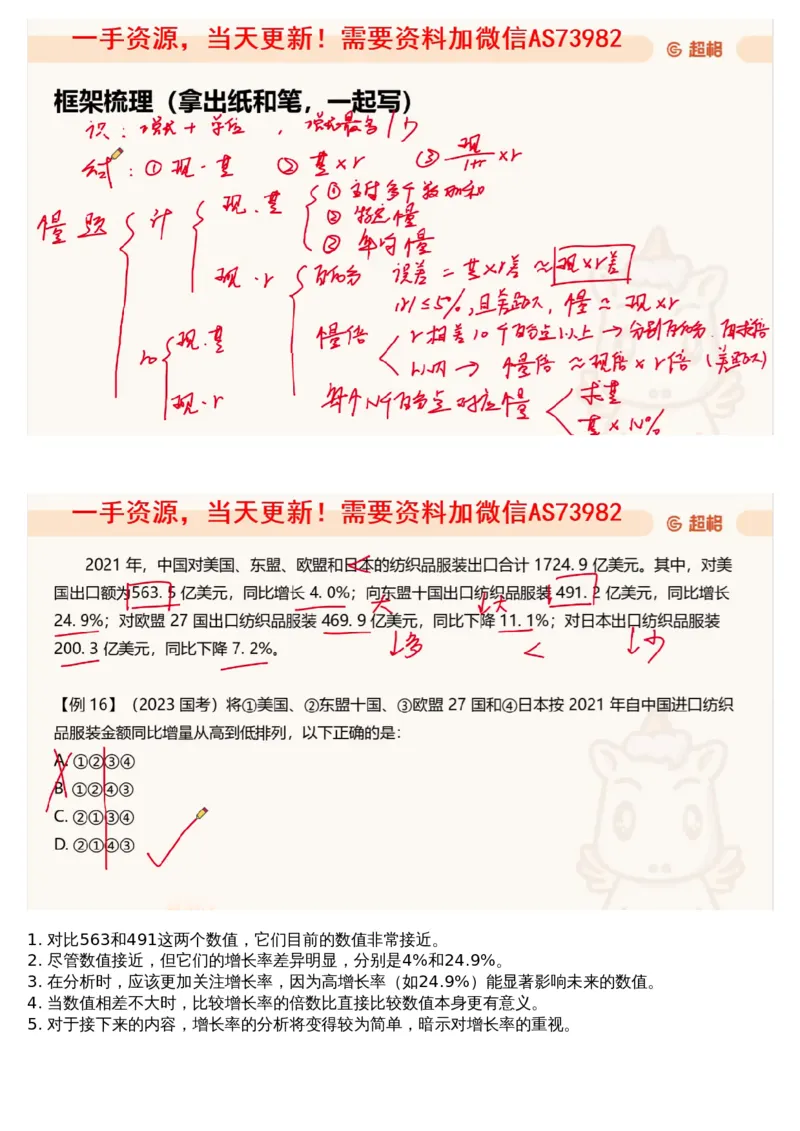 一手资源，当天更新！需要资料加微信AS73982
超格
框架梳理（拿出纸和笔，一起写）
识：增长+单位，增长最多/少
结：①现-基 ②基×r ③现/1+r×r
计
现.基
①
②
③年均
现.r
百化分 误差=基×r差≈现×r差
|r|≤5%,
r相差10个百分点以上→
以内→
现.基
现.r
每个N个百分点对应
求基
基×N%
一手资源，当天更新！需要资料加微信AS73982
超格
2021 年，中国对美国、东盟、欧盟和日本的纺织品服装出口合计 1724.9 亿美元。其中，对美
国出口额为563.5 亿美元，同比增长 4.0%；向东盟十国出口纺织品服装 491.2 亿美元，同比增长
24.9%；对欧盟 27 国出口纺织品服装 469.9 亿美元，同比下降 11.1%；对日本出口纺织品服装
大 ↓大
200.3 亿美元，同比下降 7.2%。
↓多 < ↓少
【例 16】（2023 国考）将①美国、②东盟十国、③欧盟 27 国和④日本按 2021 年自中国进口纺织
品服装金额同比增量从高到低排列，以下正确的是：
A. ①②③④
B. ①②④③
C. ②①③④
D. ②①④③
1. 对比563和491这两个数值，它们目前的数值非常接近。
2. 尽管数值接近，但它们的增长率差异明显，分别是4%和24.9%。
3. 在分析时，应该更加关注增长率，因为高增长率（如24.9%）能显著影响未来的数值。
4. 当数值相差不大时，比较增长率的倍数比直接比较数值本身更有意义。
5. 对于接下来的内容，增长率的分析将变得较为简单，暗示对增长率的重视。